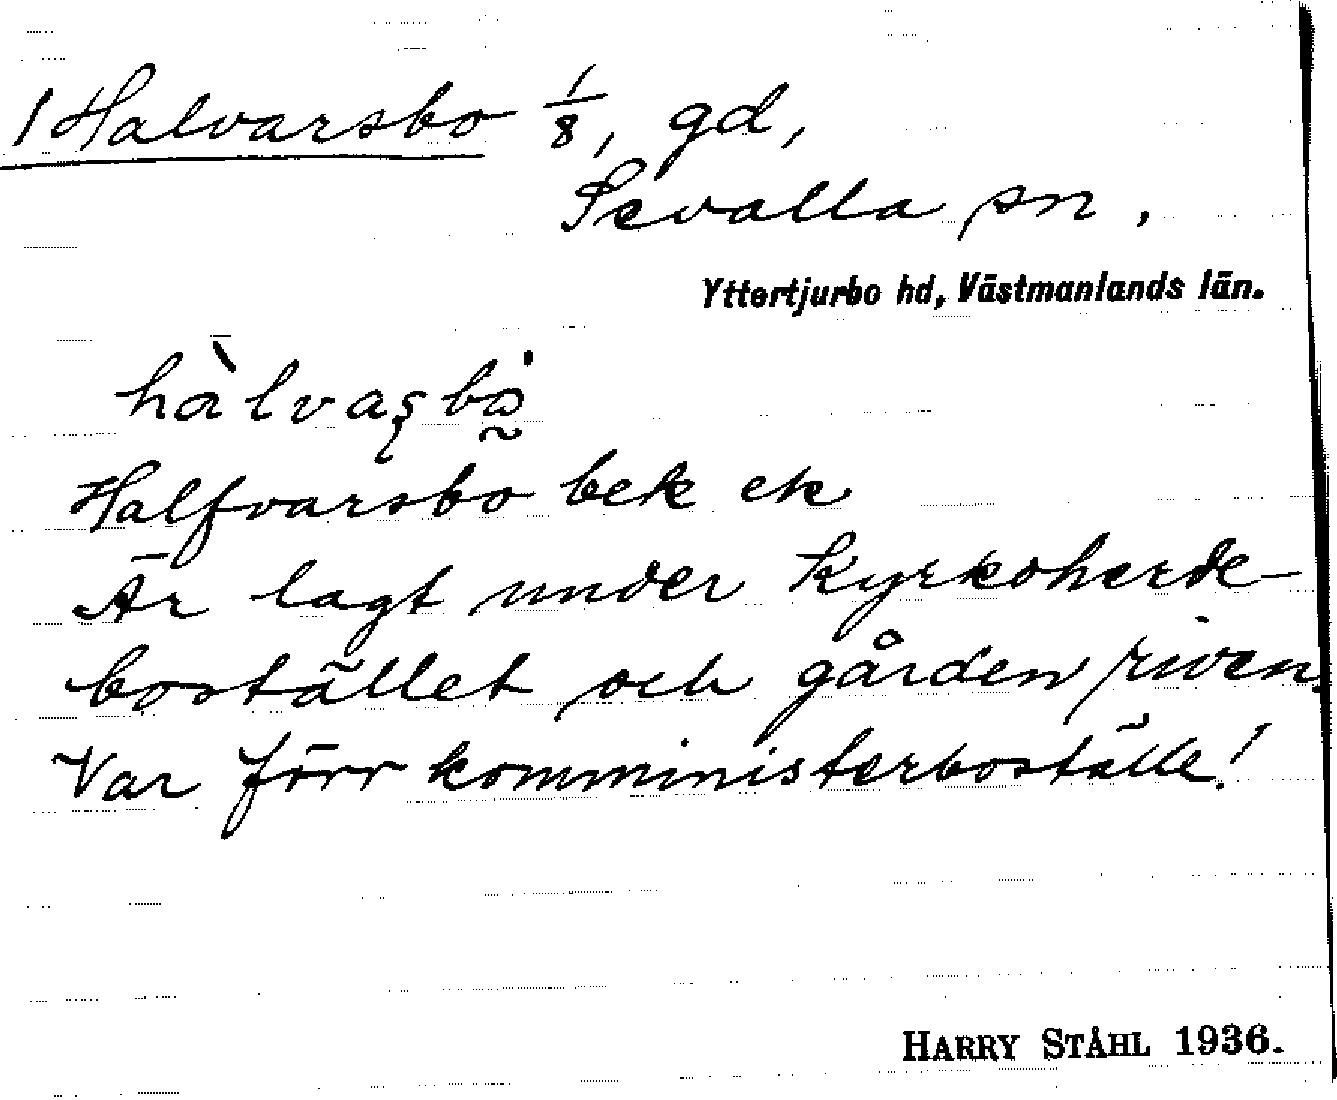 1 Halvarsbo 1/8, gd,
Sevalla sn.
Yttertjurbo hd, Västmanlands län.
hàlvaʂbȯ̰
Halfvarsbo bek ek
Är lagt under kyrkoherde-
bostället och gården riven
Var förr komministerboställe!
HARRY STÅHL 1936.